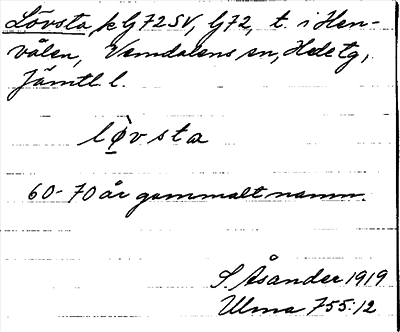 Lövsta, på G72SV, G72, t. i Hen-
vålen, Vemdalens sn, Hede tg,
Jämtl. l.
lø̀vsta
60-70 år gammalt namn.
S. Åsander 1919
Ulma 755:12